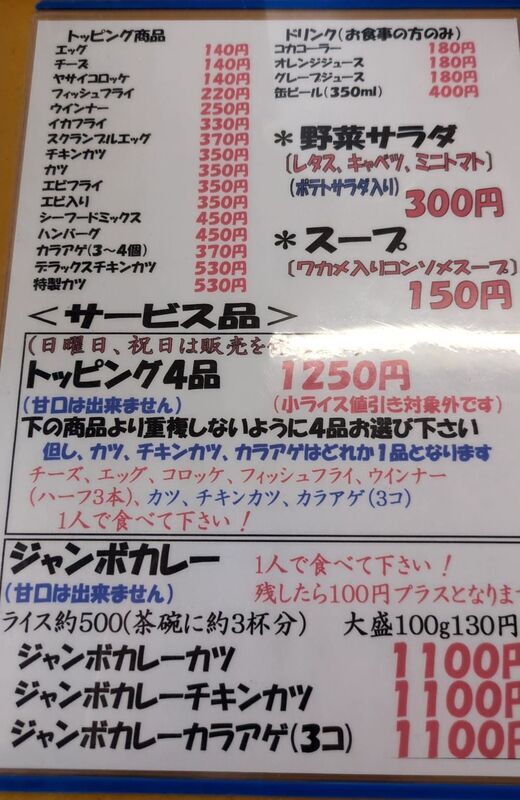 トッピング商品
エッグ 140円
チーズ 140円
ヤサイコロッケ 140円
フィッシュフライ 220円
ウインナー 250円
イカフライ 330円
スクランブルエッグ 370円
チキンカツ 350円
カツ 350円
エビフライ 350円
エビ入り 350円
シーフードミックス 450円
ハンバーグ 450円
カラアゲ(3〜4個) 370円
デラックスチキンカツ 530円
特製カツ 530円
ドリンク(お食事の方のみ)
コカコーラー 180円
オレンジジュース 180円
グレープジュース 180円
缶ビール(350ml) 400円
*野菜サラダ
(レタス、キャベツ、ミニトマト)
(ポテトサラダ入り)
300円
*スープ
(ワカメ入りコンソメスープ)
150円
<サービス品>
(日曜日、祝日は販売を
トッピング4品 1250円
(甘口は出来ません) (小ライス値引き対象外です)
下の商品より重複しないように4品お選び下さい
但し、カツ、チキンカツ、カラアゲはどれか1品となります
チーズ、エッグ、コロッケ、フィッシュフライ、ウインナー
(ハーフ3本)、カツ、チキンカツ、カラアゲ(3コ)
1人で食べて下さい!
ジャンボカレー 1人で食べて下さい!
(甘口は出来ません) 残したら100円プラスとなりま
ライス約500(茶碗に約3杯分) 大盛100g130円
ジャンボカレーカツ 1100円
ジャンボカレーチキンカツ 1100円
ジャンボカレーカラアゲ(3コ) 1100円